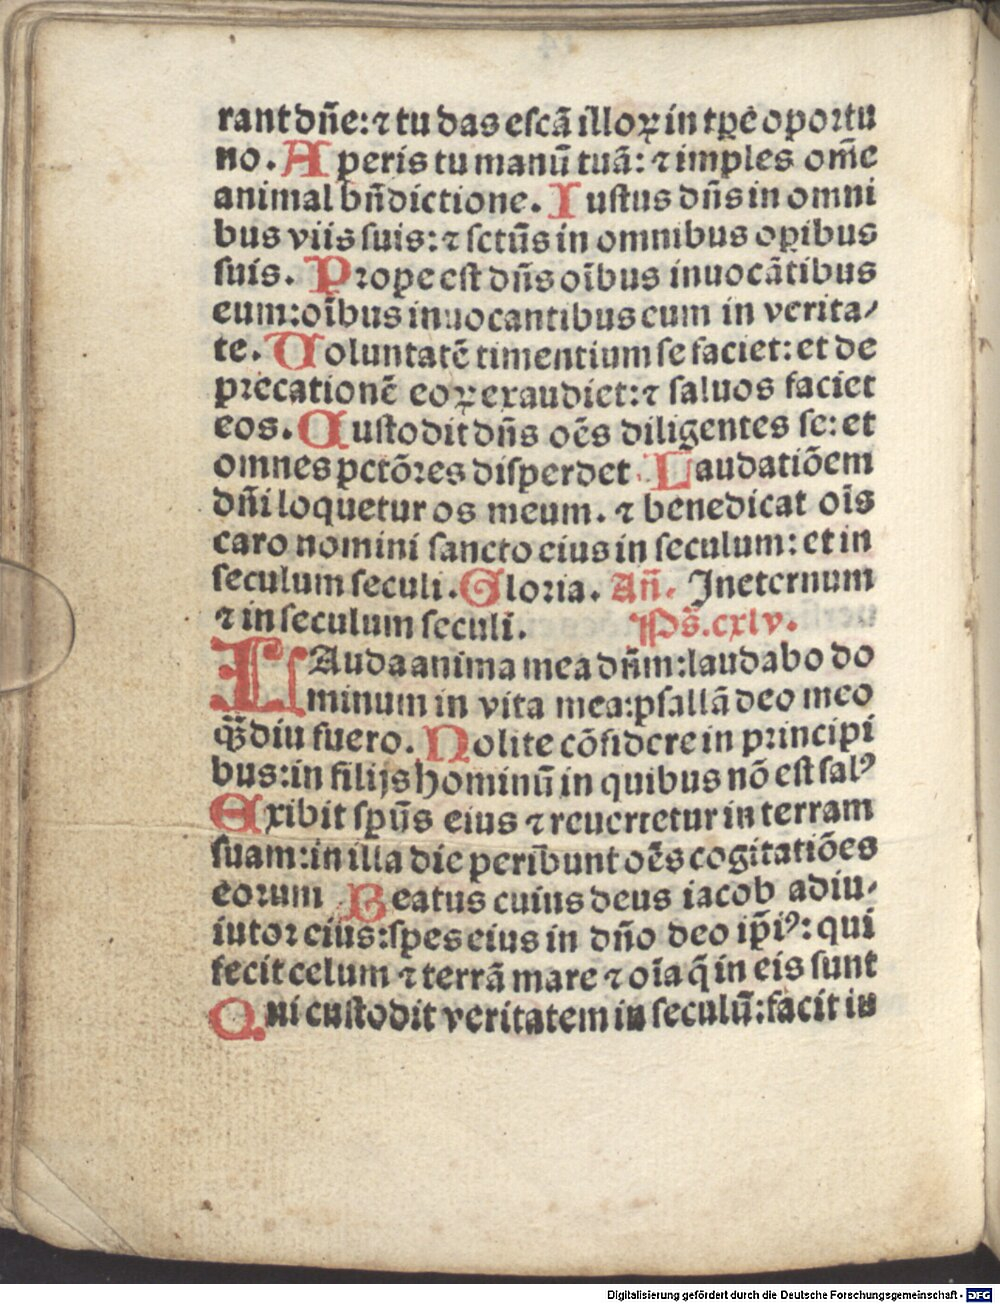 rant dñe: ⁊ tu das eſcã illoꝝ in tꝑe opoꝛtu
no. Aperis tu manũ tuã: ⁊ imples om̄e
animal bñdictione. Iuſtus dñs in omni
bus viis ſuis: ⁊ ſctũs in omnibus oꝑibus
ſuis. Pꝛope eſt dñs oĩbus inuocãtibus
eum: oĩbus inuocantibus eum in verita⸗
te. Uoluntatẽ timentium ſe faciet: et de
pꝛecationẽ eoꝝ exaudiet: ⁊ ſaluos faciet
eos. Cuſtodit dñs oẽs diligentes ſe: et
omnes pctõꝛes diſperdet. Laudatiõem
dñi loquetur os meum. ⁊ benedicat oĩs
caro nomini ſancto eius in ſeculum: et in
ſeculum ſeculi. Gloꝛia. Añ. Ineternum
⁊ in ſeculum ſeculi. Ps̃. cxlv.
LAuda anima mea dñm: laudabo do
minum in vita mea: pſallã deo meo
q̃ꝫdiu fuero. Nolite cõfidere in pꝛincipi
bus: in filijs hominũ in quibus nõ eſt ſalꝰ
Exibit ſpũs eius ⁊ reuertetur in terram
ſuam: in illa die peribunt oẽs cogitatiões
eoꝛum Beatus cuius deus iacob adiu⸗
iutoꝛ eius: ſpes eius in dño deo ip̃iꝰ: qui
fecit celum ⁊ terrã mare ⁊ oĩa q̃ in eis ſunt
Qui cuſtodit veritatem in ſeculũ: facit iu
Digitalisierung gefördert durch die Deutsche Forschungsgemeinschaft - DFG